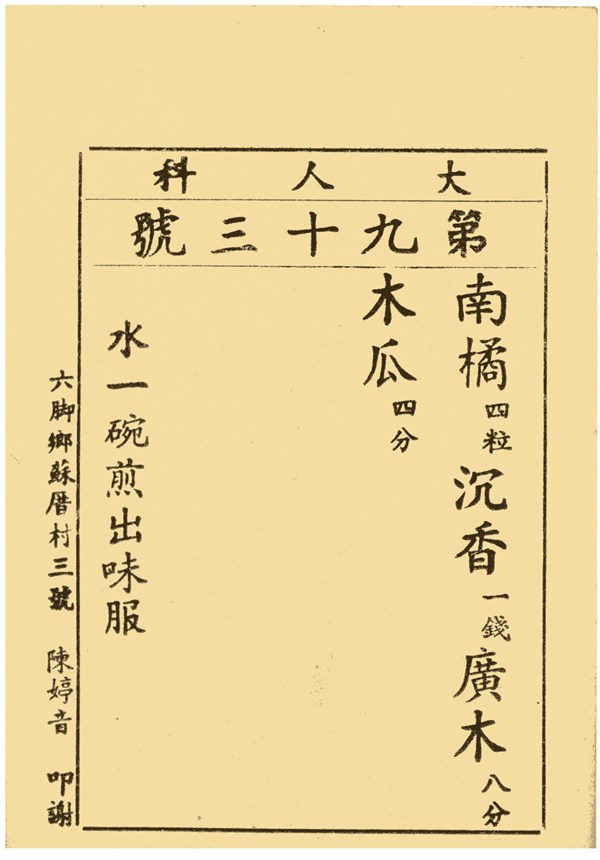 大人科
第九十三號
南橘四粒 沉香一錢 廣木八分
木瓜四分
水一碗煎出味服
六脚鄉蘇厝村三號 陳婷音 叩謝